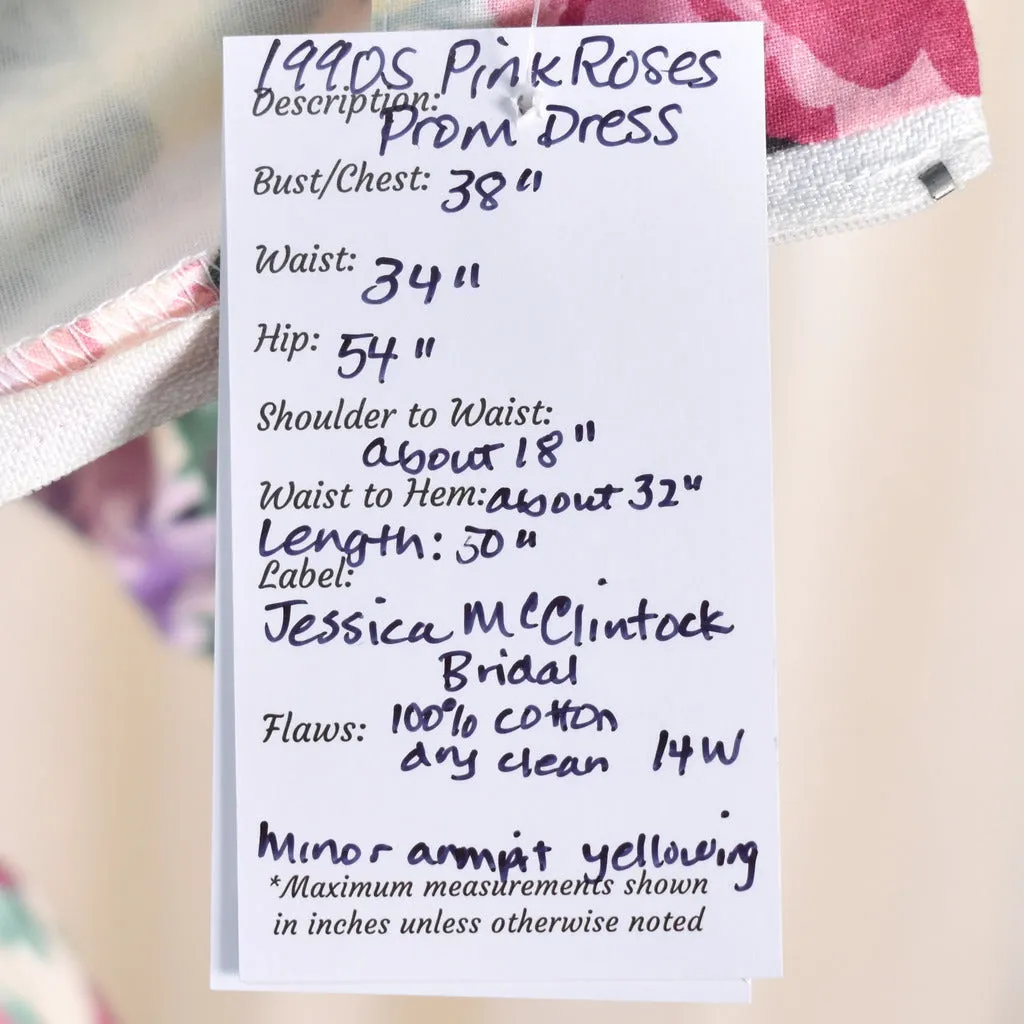 1990s Pink Roses
Description:
Prom Dress
Bust/Chest: 38"
Waist: 34"
Hip: 54"
Shoulder to Waist:
about 18"
Waist to Hem: about 32"
Length: 50"
Label:
Jessica McClintock
Bridal
Flaws: 100% cotton
dry clean 14W
Minor armpit yellowing
*Maximum measurements shown
in inches unless otherwise noted